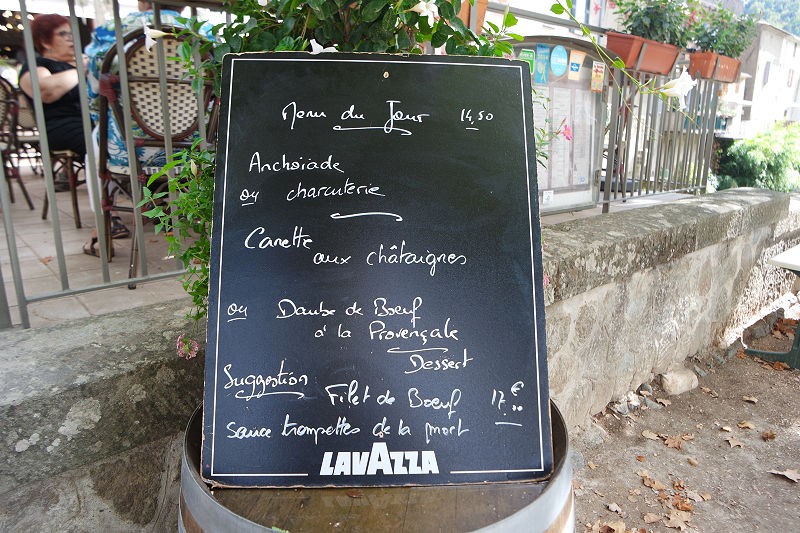 Menu du Jour 14,50
Anchoiade
ou charcuterie
Canette
aux châtaignes
ou Daube de Bœuf
à la Provençale
Dessert
Suggestion Filet de Bœuf 17,00 €
sauce trompettes de la mort
LAVAZZA